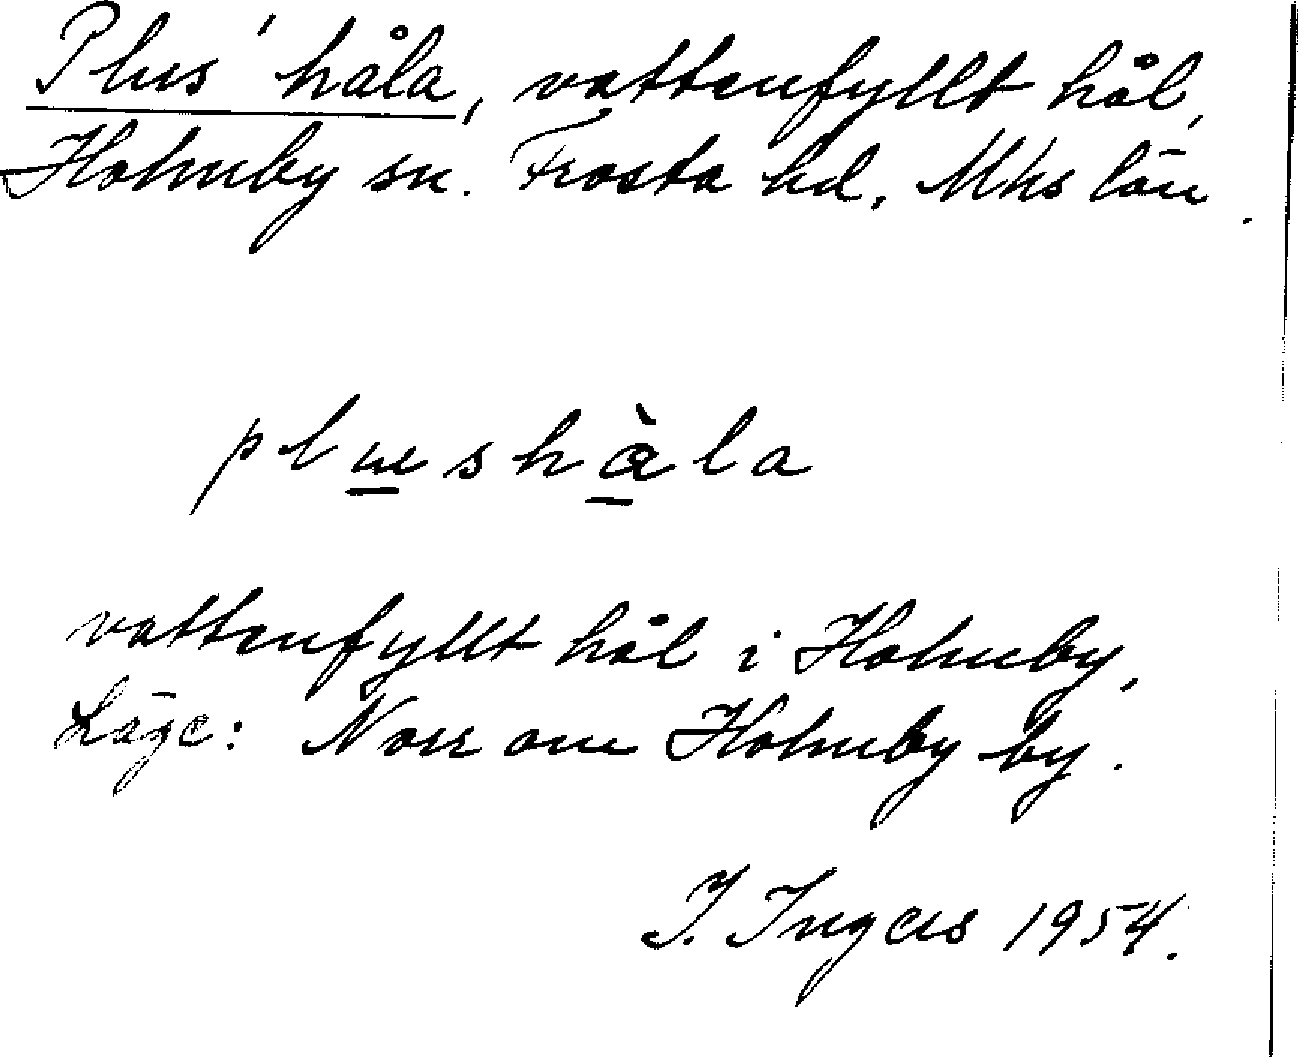 Plus' håla, vattenfyllt hål,
Holmby sn. Frosta hd. Mhs län.
plɯshɑ̀la
vattenfyllt hål i Holmby,
Läge: Norr om Holmby by.
I. Ingers 1954.